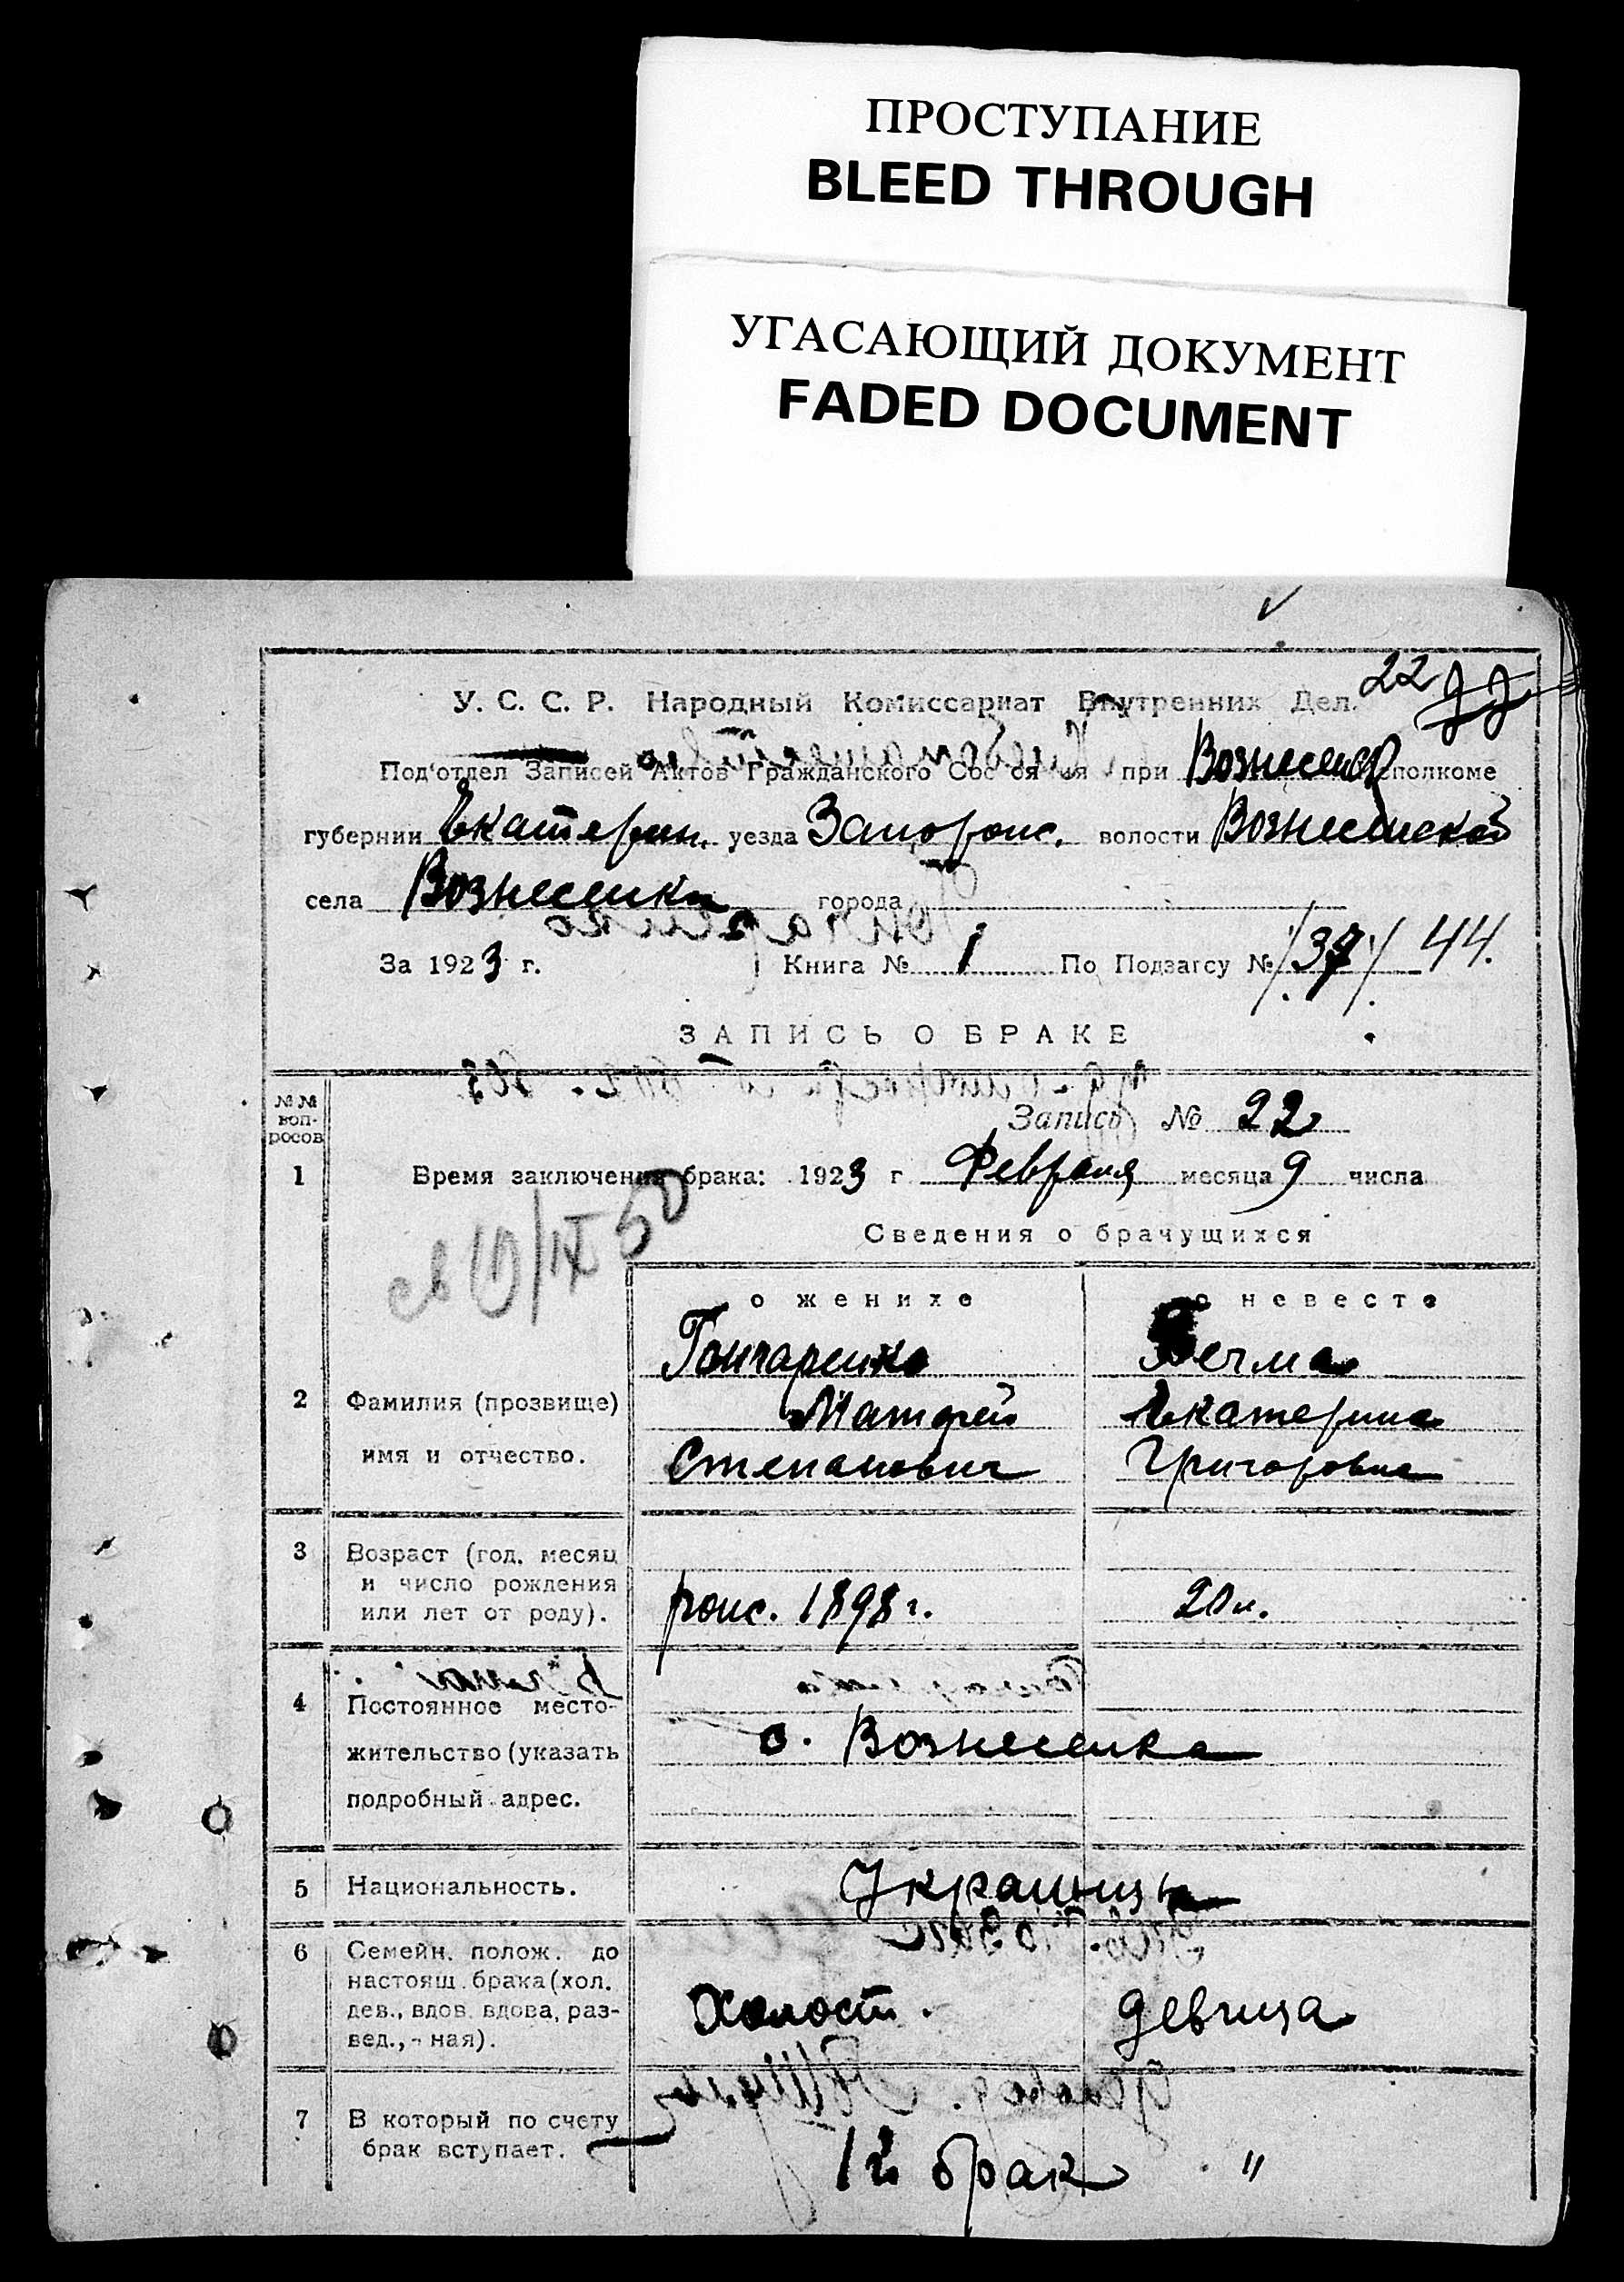 ПРОСТУПАНИЕ
BLEED THROUGH
УГАСАЮЩИЙ ДОКУМЕНТ
FADED DOCUMENT
22
У. С. С. Р. Народный Комиссариат Внутренних Дел.
Под'отдел Записей Актов Гражданского Сос оя ия при Вознесен полкоме
губернии Екатерин. уезда Запорож. волости Вознесенской
села Вознесенки города
За 1923 г. Книга № 1 По Подзагсу № /37/ 44.
ЗАПИСЬ О БРАКЕ
№№ воп-
росов
Запись № 22
1 Время заключения брака: 1923 г Февраля месяца 9 числа
Сведения о брачущихся
о женихе о невесте
Гончаренко Бечма
2 Фамилия (прозвище) Матфей Екатерина
имя и отчество. Степанович Григоровна
3 Возраст (год, месяц
и число рождения
или лет от роду). рож. 1898 г. 20 л.
4 Постоянное место-
жительство (указать с. Вознесенка
подробный адрес.
5 Национальность. Украинцы
6 Семейн. полож. до
настоящ. брака (хол.
дев., вдов. вдова, раз- Холост. девица
вед., - ная).
7 В который по счету
брак вступает. 1й брак "